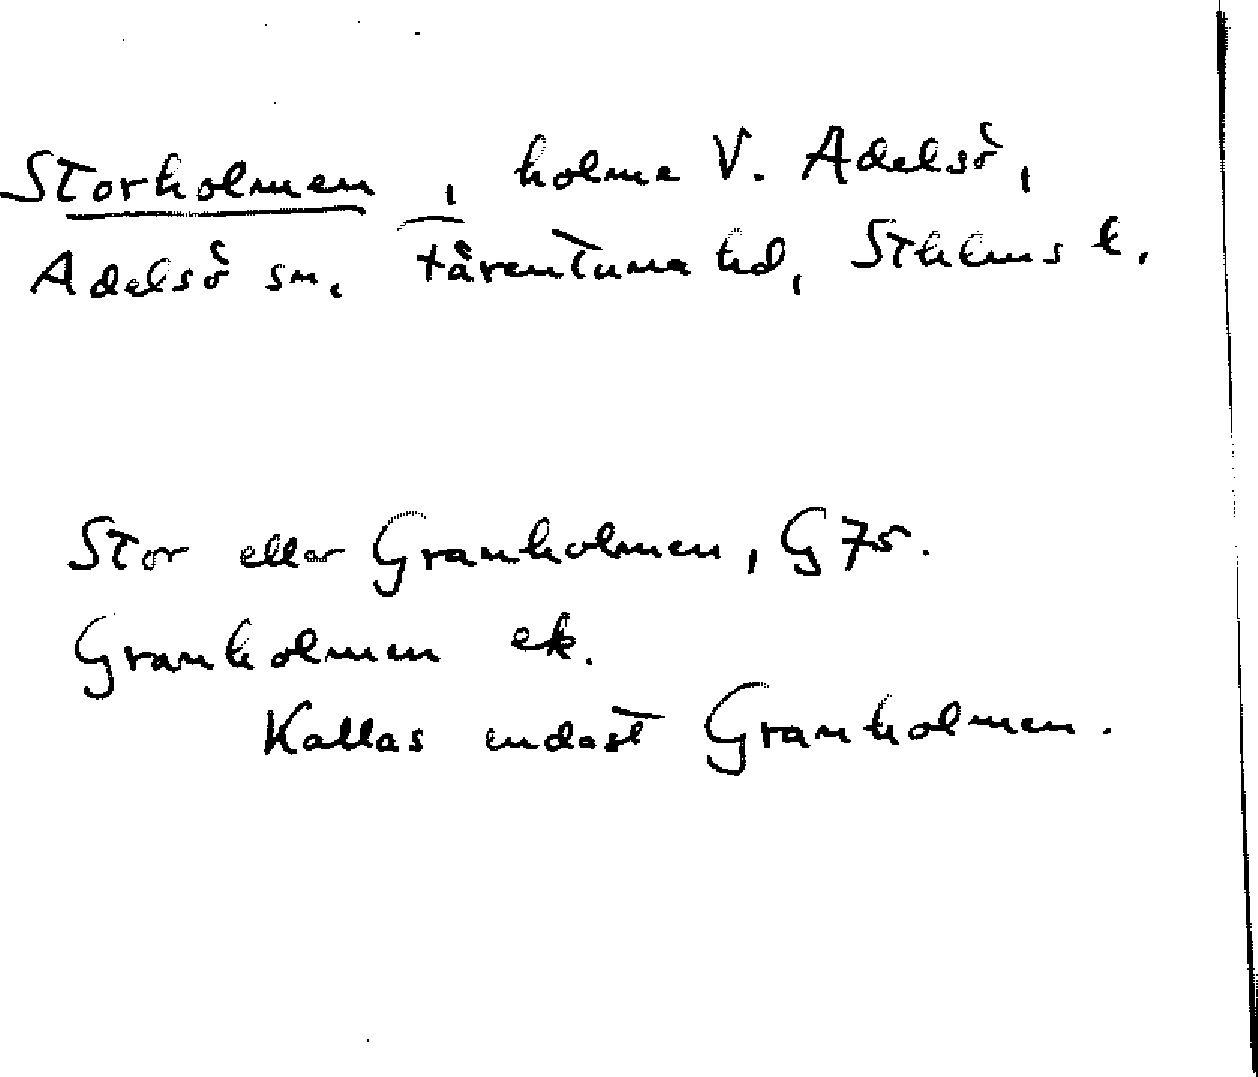 Storholmen, holme V. Adelsö,
Adelsö sn, Färentuna hd, Sthlms l.
Stor eller Granholmen, G 75.
Granholmen ek.
Kallas endast Granholmen.